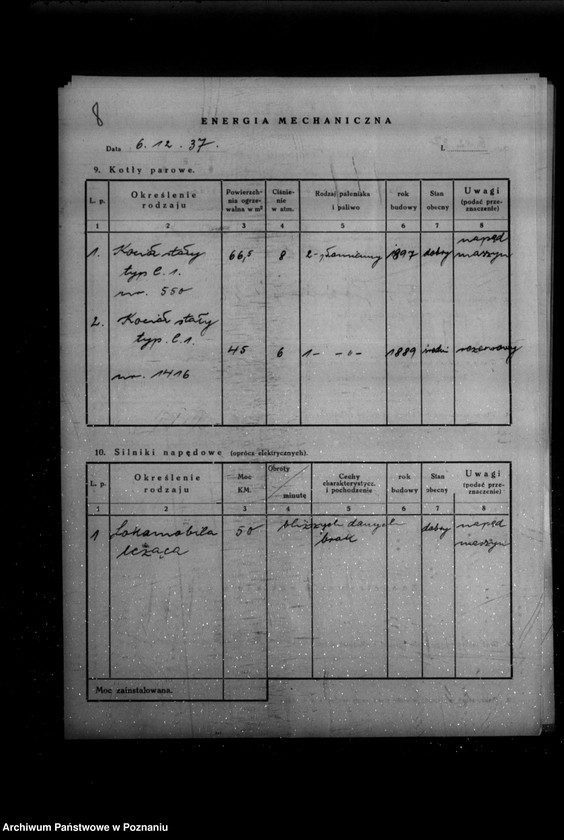 8
ENERGIA MECHANICZNA
Data 6. 12. 37. L
9. Kotły parowe.
L. p. Określenie rodzaju Powierzchnia ogrzewalna w m² Ciśnienie w atm. Rodzaj paleniska i paliwo rok budowy Stan obecny Uwagi (podać przeznaczenie)
1 2 3 4 5 6 7 8
1. Kocioł stały 66,5 8 2-płomienny 1897 dobry napęd maszyn
typ C. 1.
nr. 550
2. Kocioł stały
typ. C. 1. 45 6 1- -„- 1889 średni rezerwowy
nr. 1416
10. Silniki napędowe (oprócz elektrycznych).
L. p. Określenie rodzaju Moc KM. Obroty minutę Cechy charakterystycz. i pochodzenie rok budowy Stan obecny Uwagi (podać przeznaczenie)
1 2 3 4 5 6 7 8
1 Lokomobila 50 bliższych danych dobry napęd
leżąca brak maszyn
Moc zainstalowana.
Archiwum Państwowe w Poznaniu